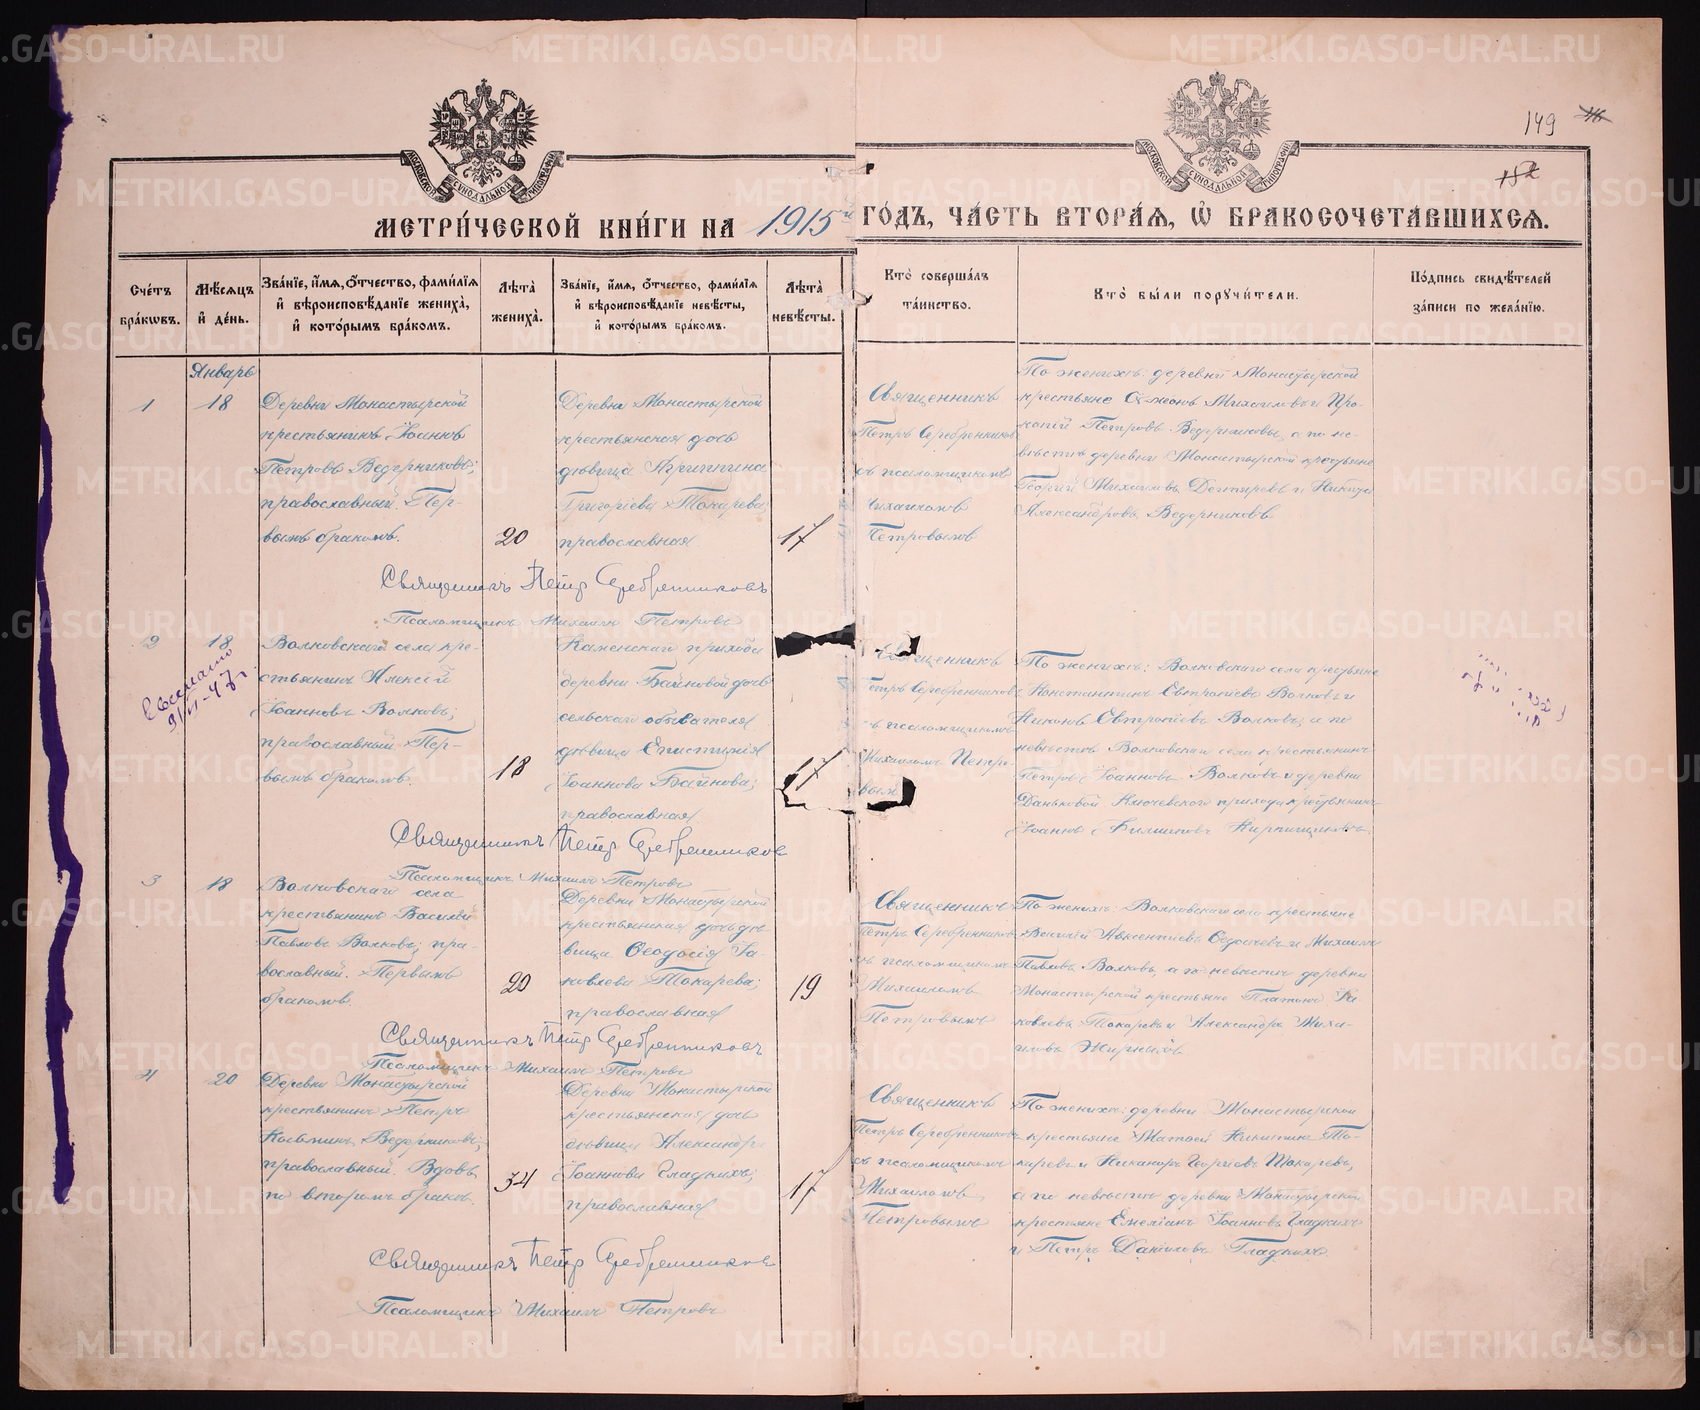 149
МЕТРИ́ЧЕСКОЙ КНИ́ГИ НА 1915й ГО́ДЪ, ЧА́СТЬ ВТОРА́Я, Ѡ БРАКОСОЧЕТА́ВШИХСЯ.
МОСКОВСКОЙ СѴНОДАЛЬНОЙ ТИПОГРАФІИ
МОСКОВСКОЙ СѴНОДАЛЬНОЙ ТИПОГРАФІИ
Сче́тъ бра́кѡвъ.
Мѣ́сяцъ и҆ де́нь.
Зва́нїе, и҆́мя, ѻ҆́тчество, фами́лїя и҆ вѣроисповѣ́данїе жениха̀, и҆ кото́рымъ бра́комъ.
Лѣ́та жениха̀.
Зва́нїе, и҆́мя, ѻ҆́тчество, фами́лїя и҆ вѣроисповѣ́данїе невѣ́сты, и҆ кото́рымъ бра́комъ.
Лѣ́та невѣ́сты.
Кто̀ соверша́лъ та́инство.
Кто̀ бы́ли поручи́тели.
По́дпись свидѣ́телей за́писи по жела́нїю.
Январь
1
18
Деревни Монастырской
крестьянинъ Іоаннъ
Петровъ Ведерниковъ;
православный. Пер-
вымъ бракомъ.
20
Деревни Монастырской
крестьянская дочь
дѣвица Агриппина
Григоріева Токарева;
православная.
17
Священникъ
Петръ Серебренниковъ
съ псаломщикомъ
Михаиломъ
Петровымъ
По женихѣ: деревни Монастырской
крестьяне Симеонъ Михаиловъ и Про-
копій Петровъ Ведерниковы, а по не-
вѣстѣ деревни Монастырской крестьяне
Георгій Михаиловъ Дегтяревъ и Никита
Александровъ Ведерниковъ.
Священникъ Петр Серебренниковъ
Псаломщикъ Михаилъ Петровъ
2
18
9/VI-47 г.
Волковскаго села кре-
стьянинъ Алексій
Іоанновъ Волковъ;
православный. Пер-
вымъ бракомъ.
18
Каменскаго прихода
деревни Байновой дочь
сельскаго обывателя
дѣвица Епистимія
Іоаннова Байнова;
православная
17
Священникъ
Петръ Серебренниковъ
съ псаломщикомъ
Михаиломъ Петро-
вымъ
По женихѣ: Волковскаго села крестьяне
Константинъ Евтропіевъ Волковъ и
Никонъ Евтропіевъ Волковъ; а по
невѣстѣ Волковскаго села крестьянинъ
Петръ Іоанновъ Волковъ и деревни
Даньковой Ключевскаго прихода крестьянинъ
Іоаннъ Кирпищиковъ.
Священникъ Петр Серебренников
Псаломщикъ Михаилъ Петровъ
3
18
Волковскаго села
крестьянинъ Василій
Павловъ Волковъ; пра-
вославный. Первымъ
бракомъ.
20
Деревни Монастырской
крестьянская дочь дѣ-
вица Ѳеодосія Іа-
ковлева Токарева;
православная
19
Священникъ
Петръ Серебренниковъ
съ псаломщикомъ
Михаиломъ
Петровымъ
По женихѣ: Волковскаго села крестьяне
Василій Авксентіевъ и Михаилъ
Павловъ Волковъ, а по невѣстѣ деревни
Монастырской крестьяне Платонъ Іа-
ковлевъ Токаревъ и Александръ Миха-
иловъ Жирныхъ
Священникъ Петр Серебренниковъ
Псаломщикъ Михаилъ Петровъ
4
20
Деревни Монастырской
крестьянинъ Петръ
Косьминъ Ведерниковъ,
православный. Вдовъ,
по второмъ бракѣ.
34
Деревни Монастырской
крестьянская дочь
дѣвица Александра
Іоаннова Гладкихъ;
православная
17
Священникъ
Петръ Серебренниковъ
съ псаломщикомъ
Михаиломъ
Петровымъ
По женихѣ: деревни Монастырской
крестьяне Матѳей Никитинъ То-
каревъ и Никаноръ Георгіевъ Токаревъ,
а по невѣстѣ деревни Монастырской
крестьяне Емеліанъ Іоанновъ Гладкихъ
и Петръ Даніиловъ Гладкихъ.
Священникъ Петр Серебренников
Псаломщикъ Михаилъ Петровъ